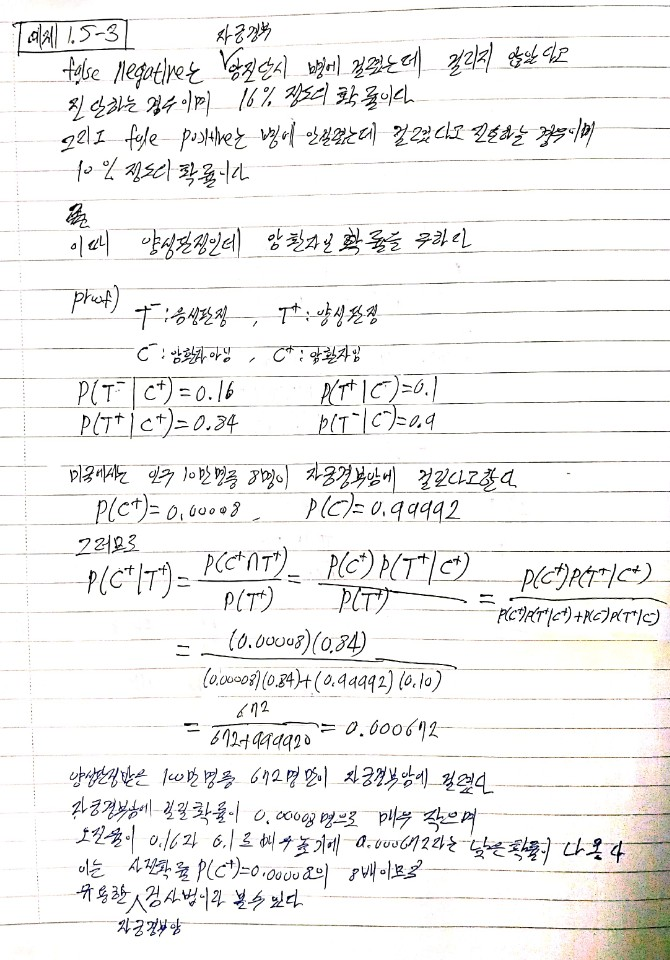 예제 1.5-3
자궁경부
false negative는 암진단시 병에 걸렸는데 걸리지 않았다고
진단하는 경우이며 16% 정도의 확률이다
그리고 false positive는 병에 안걸렸는데 걸렸다고 진단하는 경우이며
10% 정도의 확률이다
이때 양성판정인데 암환자인 확률을 구하라
proof)
T⁻:음성판정 , T⁺:양성판정
C⁻:암환자아님 , C⁺:암환자임
P(T⁻|C⁺)=0.16 P(T⁺|C⁻)=0.1
P(T⁺|C⁺)=0.84 P(T⁻|C⁻)=0.9
미국에서는 인구 10만명중 8명이 자궁경부암에 걸린다고한다
P(C⁺)=0.00008, P(C⁻)=0.99992
그러므로
P(C⁺|T⁺)=P(C⁺∩T⁺)/P(T⁺)=P(C⁺)P(T⁺|C⁺)/P(T⁺)=P(C⁺)P(T⁺|C⁺)/P(C⁺)P(T⁺|C⁺)+P(C⁻)P(T⁺|C⁻)
=(0.00008)(0.84)/(0.00008)(0.84)+(0.99992)(0.10)
=672/672+999920=0.000672
양성판정받은 100만명중 672명만이 자궁경부암에 걸렸다
자궁경부암에 걸릴확률이 0.00008명으로 매우 작으며
오진율이 0.16과 0.1로 매우높기에 0.000672라는 낮은확률이 나온다
이는 사전확률 P(C⁺)=0.00008의 8배이므로
유용한 검사법이라 볼수 있다
자궁경부암